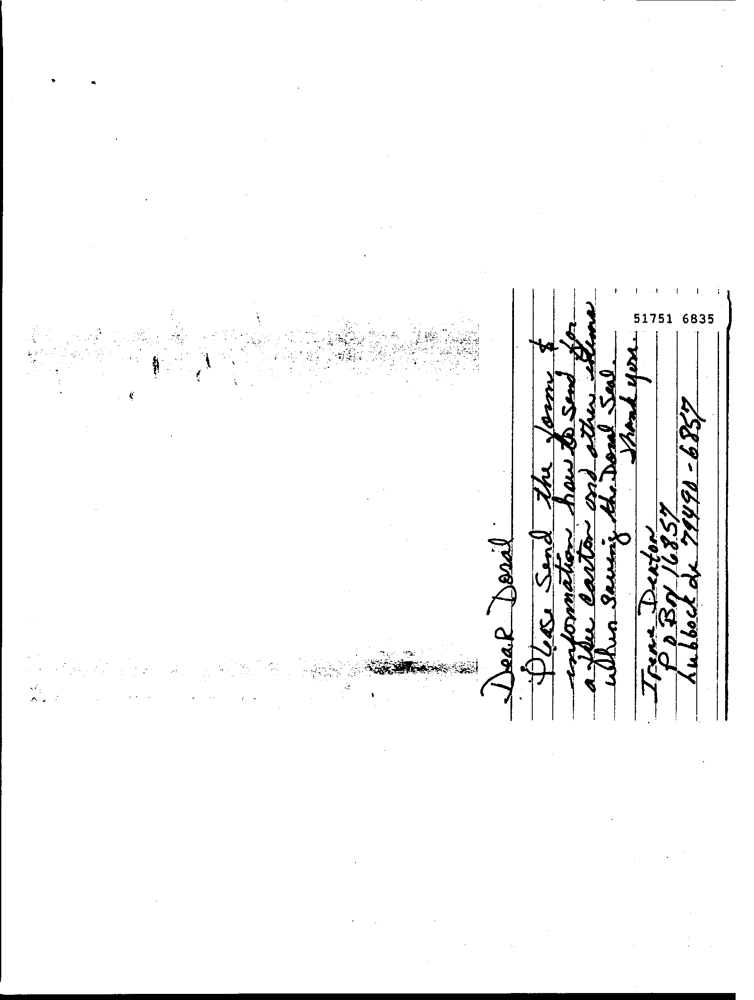 Dear Doral
Please Send the form &
information how to send for
a free carton and other items
when saving the Doral Seal.
Thank you.
Irene Deaton
P O Box 16857
Lubbock Tx 79490-6857
51751 6835